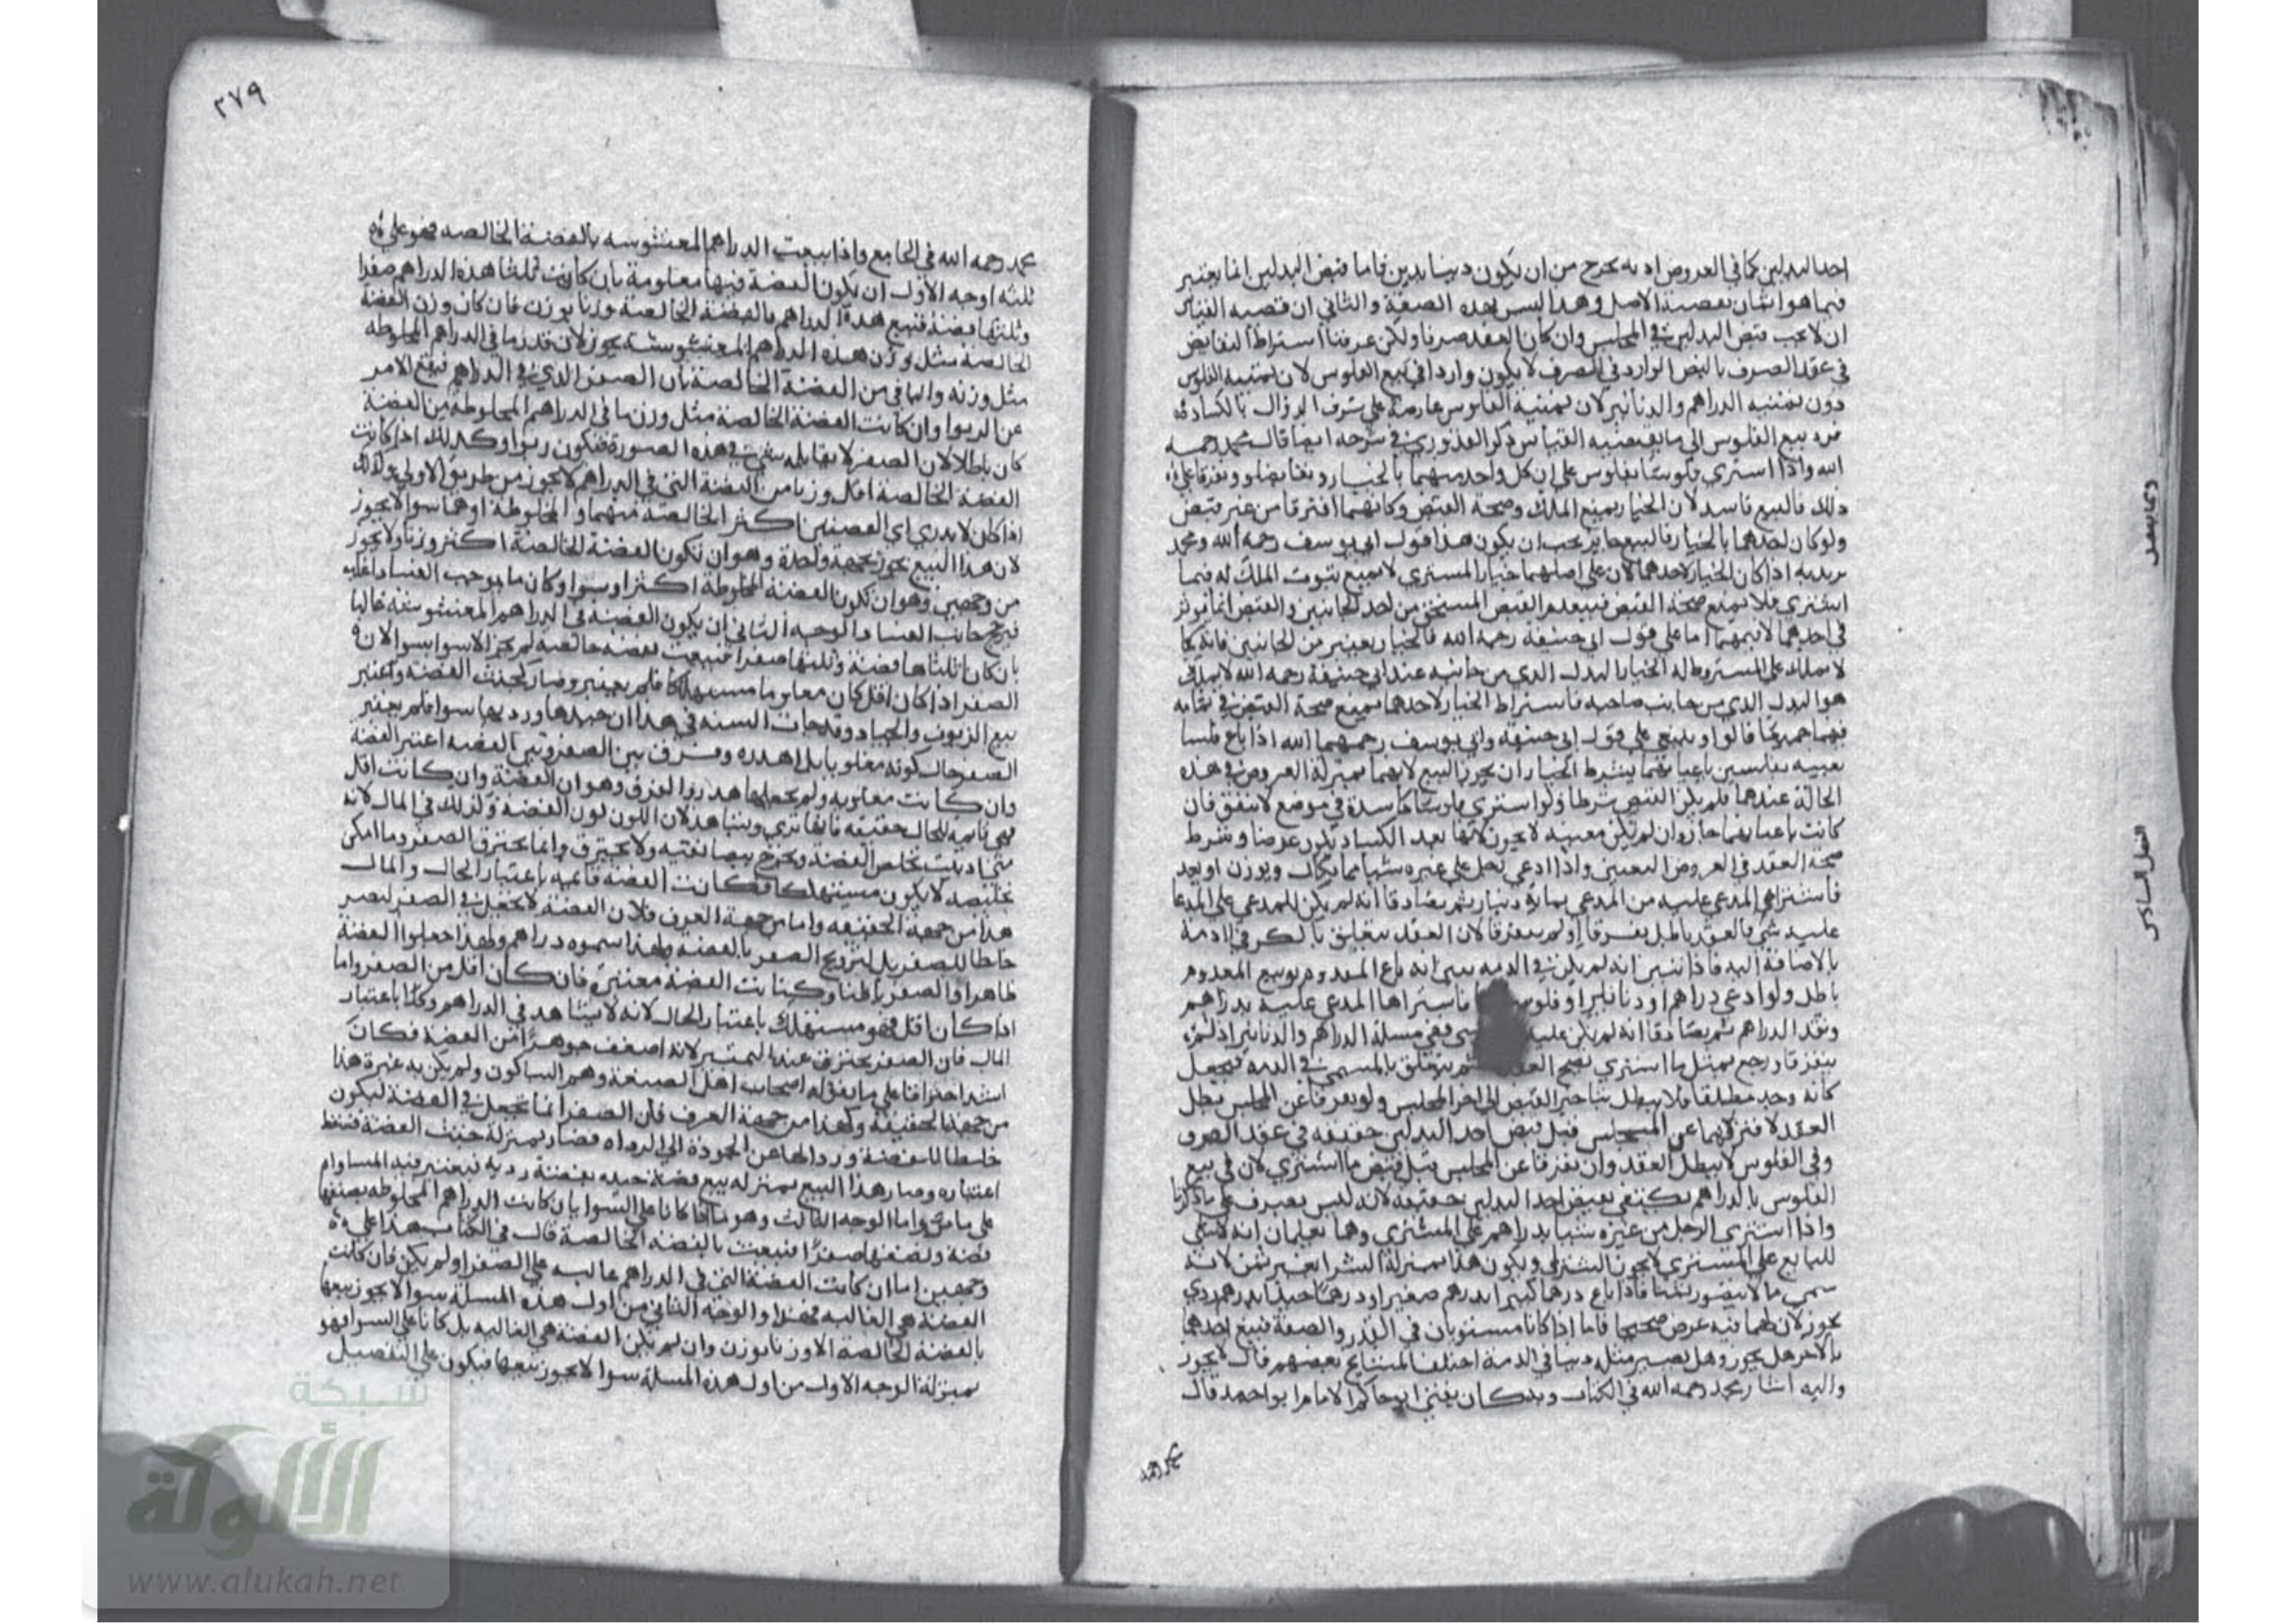 احد البدلين كما في العروض اذ به يخرج من ان يكون دينا بدين فاما قبض البدلين انما يعتبر
فيما هو اثمان بقضية الاصل وهذا ليس بهذه الصفة والثاني ان قضيه القياس
ان لا يجب قبض البدلين في المجلس وان كان العقد صرفا ولكن عرفنا اشتراط التقابض
في عقد الصرف بالنص الوارد في الصرف لا يكون واردا في بيع الفلوس لان ثمنيه الفلوس
دون ثمنيه الدراهم والدنانير لان ثمنية الفلوس عارضة على شرف الزوال بالكساد
فرد بيع الفلوس الى ما يقتضيه القياس ذكر القدوري في شرحه ايضا قال محمد رحمه
الله واذا اشترى فلوسا بفلوس على ان كل واحد منهما بالخيار وتقابضا وتفرقا على
ذلك فالبيع فاسد لان الخيار يمنع الملك وصحة القبض وكانهما افترقا من غير قبض
ولو كان احدهما بالخيار فالبيع جايز يجب ان يكون هذا قول ابي يوسف رحمه الله ومحمد
يريد به اذا كان الخيار لاحدهما لان على اصلهما خيار المشتري لا يمنع ثبوت الملك له فيما
اشترى فلا يمنع صحة القبض فينعدم القبض المستحق من احد الجانبين والقبض انما يوثر
في احدهما لا فيهما اما على قول ابي حنيفة رحمه الله فالخيار يعتبر من الجانبين فانه كما
لا يملك على المشروط له الخيار البدل الذي من جانبه عند ابي حنيفة رحمه الله لا يملك
هو البدل الذي من جانب صاحبه فاشتراط الخيار لاحدهما يمنع صحة القبض في
فيهما جميعا قالوا وينبغي على قول ابي حنيفة وابي يوسف رحمهما الله اذا باع فلسا
بعينه بفلسين باعيانهما بشرط الخيار ان يجوز البيع لانهما بمنزلة العروض في هذه
الحالة عندهما فلم يكن القبض شرطا ولو اشترى فلوسا كاسدة في موضع لا تنفق فان
كانت باعيانهما جاز وان لم تكن معينه لا يجوز لانها بعد الكساد يكون عرضا وشرط
صحة العقد في العروض التعيين واذا ادعى رجل على غيره شيا مما يكال ويوزن او يعد
فاشتراه المدعى عليه من المدعي بماية دينار ثم تصادقا انه لم يكن للمدعي على المدعا
عليه شي فالعقد باطل تفرقا او لم يتفرقا لان العقد يتعلق بالكر في الذمة
بالاضافة اليه فاذا تبين انه لم يكن في الذمه تبين انه باع المعدوم وبيع المعدوم
باطل ولو ادعى دراهم او دنانير او فلوس فاشتراها المدعى عليه بدراهم
ونقد الدراهم ثم تصادقا انه لم يكن عليه شي ففي مسلة الدراهم والدنانير اذ لم
يتفرقا ورجع بمثل ما اشترى يصح العقد لم يتعلق بالمسمى في الذمه فيجعل
كانه وجد مطلقا فلا يبطل بتاخير القبض الى اخر المجلس ولو تفرقا عن المجلس بطل
العقد لافتراقهما عن المجلس قبل قبض احد البدلين حقيقه في عقد الصرف
وفي الفلوس لا يبطل العقد وان تفرقا عن المجلس قبل قبض ما اشترى لان في بيع
الفلوس بالدراهم يكتفى بقبض احد البدلين حقيقه لانه ليس بصرف على ما ذكرنا
واذا اشترى الرجل من غيره شيا بدراهم على المشتري وهما يعلمان انه لا شي
للبايع على المشتري لا يجوز الشرا ويكون هذا بمنزلة الشرا بغير ثمن لانه
سمى ما لا يتصور ثمنا فاذا باع درهما كبيرا بدرهم صغير او درهما جيدا بدرهم ردي
يجوز لان لهما فيه غرض صحيح فاما اذا كانا مستويان في القدر والصفة فبيع احدهما
بالاخر هل يجوز وهل يصير مثله دينا في الذمة اختلف المشايخ بعضهم قال لا يجوز
واليه اشار محمد رحمه الله في الكتاب وبه كان يفتي الحاكم الامام ابو احمد قال
محمد رحمه
وكما يصل
الفصل السادس
٢٧٩
محمد رحمه الله في الجامع واذا بيعت الدراهم المغشوشه بالفضة الخالصه فهو على
ثلثه اوجه الاول ان يكون الفضة فيها معلومة بان كانت ثلثا هذه الدراهم صفرا
وثلثها فضة فبيع هذه الدراهم بالفضة الخالصة وزنا بوزن فان كان وزن الفضة
الخالصة مثل وزن هذه الدراهم المغشوشة يجوز لان قدر ما في الدراهم المخلوطه
مثل وزنه والباقي من الفضة الخالصة بازا الصفر الذي في الدراهم فيقع الامر
عن الربوا وان كانت الفضة الخالصة مثل وزن ما في الدراهم المخلوطه من الفضة
كان باطلا لان الصفر لا يقابله شي في هذه الصورة فيكون ربوا وكذلك اذا كانت
الفضة الخالصة اقل وزنا من الفضة التي في الدراهم لا يجوز من طريق الاولى وكذلك
اذا كان لا يدري اي الفضتين اكثر الخالصة منهما والمخلوطة او هما سوا لا يجوز
لان هذا البيع يجوز بجهة واحدة وهو ان تكون الفضة الخالصة اكثر وزنا ولا يجوز
من وجهين وهو ان تكون الفضة المخلوطة اكثر او سوا وكان ما يوجب الفساد اغلب
فيرجح جانب الفساد والوجه الثاني ان يكون الفضة في الدراهم المغشوشة غالبا
بان كان ثلثاها فضة وثلثها صفرا فبيعت بفضة خالصه لم يجز الا سوا بسوا لان
الصفر اذا كان اقل كان مغلوبا مستهلكا فلم يعتبر وصار كخبث الفضه واعتبر
بيع الزيوف والجياد وقد جات السنه في هذا ان جيدها ورديها سوا فلم يعتبر
الصفر حال كونه مغلوبا بل اهدره وفرق بين الصفر وبين الفضه اعتبر الفضه
وان كانت مغلوبه ولم يجعلها هدرا والفرق وهو ان الفضة وان كانت اقل
فهي قايمه للحال حقيقه فانها ترى وتشاهد لان اللون لون الفضة وكذلك في المال لانه
متى اذيبت تخلص الفضة وتخرج بيضا نقيه ولا يحترق وانما يحترق الصفر وما امكن
تخليصه لا يكون مستهلكا فكانت الفضه قايمه باعتبار الحال والمال
هذا من جهة الحقيقه واما من جهة العرف فلان الفضة لا تجعل في الصفر ليصير
خلطا للصفر بل لترويج الصفر بالفضه ولهذا سموه دراهم ولهذا جعلوا الفضة
ظاهرا والصفر باطنا وكانت الفضة معتبرة فان كان اقل من الصفر واما
اذا كان اقل فهو مستهلك باعتبار الحال لانه لا يشاهد في الدراهم وكذا باعتبار
المال فان الصفر يحترق عند التمييز لانه اضعف جوهرا من الفضة فكان
اشد احتراقا على ما يقوله اصحاب اهل الصنعة وهم السباكون ولم يكن به عبرة هذا
من جهة الحقيقة وكذا من جهة العرف فان الصفر انما يجعل في الفضة ليكون
خلطا للفضة وردا لها عن الجودة الى الرداه فصار بمنزلة خبث الفضة فسقط
اعتباره وصار هذا البيع بمنزله بيع فضة جيده بفضة رديه فيعتبر فيه المساواه
على ما مر واما الوجه الثالث وهو ما اذا كانا على السوا بان كانت الدراهم المخلوطه نصفها
فضة ونصفها صفرا فبيعت بالفضه الخالصة قال في الكتاب هذا على
وجهين اما ان كانت الفضة التي في الدراهم غالبه على الصفر او لم يكن فان كانت
الفضة هي الغالبه فهذا والوجه الثاني من اول هذه المسلة سوا لا يجوز بيعها
بالفضة الخالصة الا وزنا بوزن وان لم تكن الفضة هي الغالبه بل كانا على السوا فهو
بمنزلة الوجه الاول من اول هذه المسلة سوا لا يجوز بيعها فيكون على التفصيل
شبكة
الألوكة
www.alukah.net